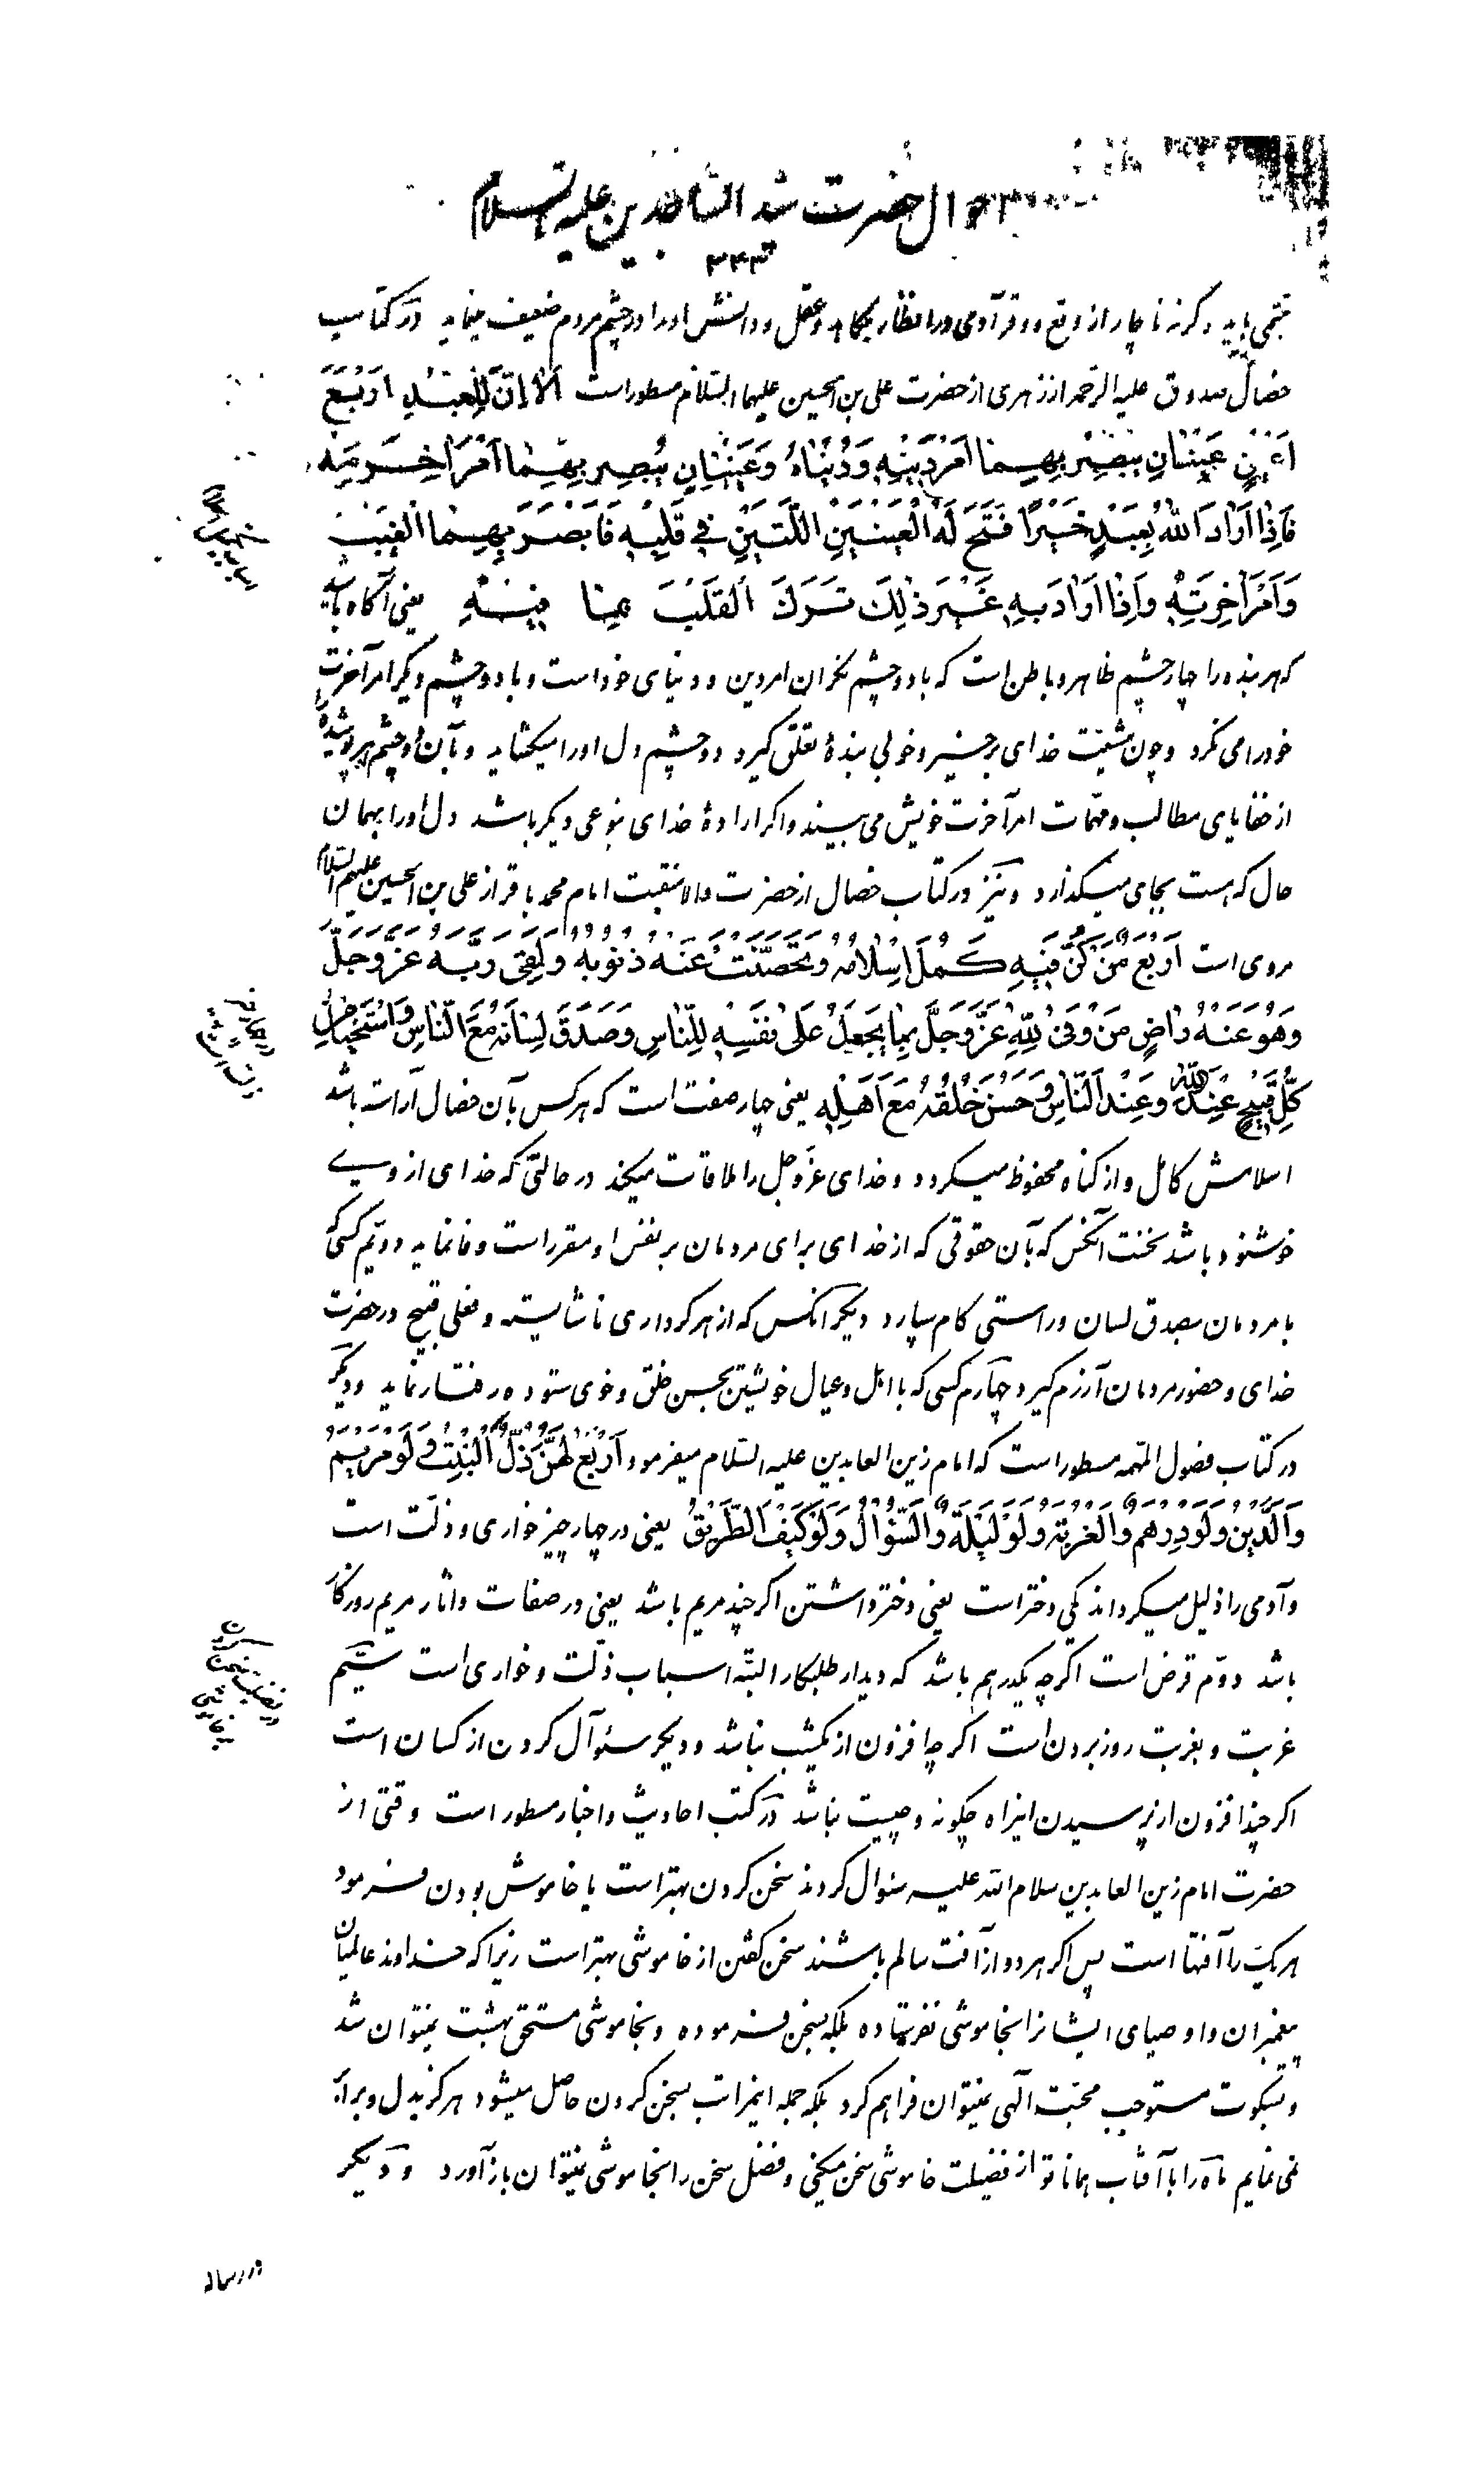 احوال حضرت سید الساجدین علیه السلام
۳۴۳
باید وگرنه ناچار از وقع ووقر آدمی در انظار بکاهد وعقل ودانش اورا در چشم مردم ضعیف مینماید در کتاب
خصال صدوق علیه الرحمه از زهری از حضرت علی بن الحسین علیهما السلام مسطور است اَلا اِنَّ لِلْعَبْدِ اَرْبَعَ
اَعْیُنٍ عَیْنانِ یُبْصِرُ بِهِما اَمْرَ دینِهِ وَدُنْیاهُ وَعَیْنانِ یُبْصِرُ بِهِما اَمْرَ اخِرَتِهِ
فَاِذا اَرادَ اللهُ بِعَبْدٍ خَیْرًا فَتَحَ لَهُ الْعَیْنَیْنِ اللَّتَیْنِ فی قَلْبِهِ فَاَبْصَرَ بِهِمَا الْغَیْبَ
وَاَمْرَ اخِرَتِهِ وَاِذا اَرادَ بِهِ غَیْرَ ذلِکَ تَرَکَ الْقَلْبَ بِما فیهِ یعنی آگاه باشید
که هر بنده را چار چشم ظاهر و باطن است که با دو چشم نگران امر دین و دنیای خود است و با دو چشم دیگر امر آخرت
خود را می نگرد وچون مشیت خدای بر خیر وخوبی بندۀ تعلق گیرد دو چشم دل اورا میگشاید وبآن دو چشم بر پوشیدۀ
از خفایای مطالب ومهمات امر آخرت خویش می بیند واگر ارادۀ خدای بنوعی دیگر باشد دل اورا بهمان
حال که هست بجای میگذارد ونیز در کتاب خصال از حضرت والا منقبت امام محمد باقر از علی بن الحسین علیهم السلام
مروی است اَرْبَعٌ مَنْ کُنَّ فیهِ کَمُلَ اِسْلامُهُ وَمُحِّصَتْ عَنْهُ ذُنُوبُهُ وَلَقِیَ رَبَّهُ عَزَّ وَجَلَّ
وَهُوَ عَنْهُ راضٍ مَنْ وَفی لِلّهِ عَزَّ وَجَلَّ بِما یَجْعَلُ عَلی نَفْسِهِ لِلنّاسِ وَصَدَقَ لِسانُهُ مَعَ النّاسِ وَاسْتَحْیا مِنْ
کُلِّ قَبیحٍ عِنْدَ اللهِ وَعِنْدَ النّاسِ وَحَسُنَ خُلْقُهُ مَعَ اَهْلِهِ یعنی چهار صفت است که هر کس بآن خصال آراسته باشد
اسلامش کامل واز گناه محفوظ میگردد وخدای عز وجل را ملاقات میکند در حالتی که خدای از وی
خوشنود باشد نخست آنکس که بآن حقوقی که از خدای برای مردمان بر نفس او مقرر است وفا نماید دویم کسی که
با مردمان بصدق لسان وراستی کام سپارد دیگر آنکس که از هر کرداری ناشایسته وفعلی قبیح در حضرت
خدای وحضور مردمان آزرم گیرد چهارم کسی که با اهل وعیال خویشتن بحسن خلق وخوی ستوده رفتار نماید ودیگر
در کتاب فصول المهمه مسطور است که امام زین العابدین علیه السلام میفرمود اَرْبَعٌ لَهُنَّ ذُلٌّ اَلْبِنْتُ وَلَوْ مَرْیَمُ
وَالدَّیْنُ وَلَوْ دِرْهَمٌ وَالْغُرْبَةُ وَلَوْ لَیْلَةٌ وَالسُّؤالُ وَلَوْ کَیْفَ الطَّریقُ یعنی در چهار چیز خواری وذلت است
وآدمی را ذلیل میگرداند یکی دختر است یعنی دختر داشتن اگر چند مریم باشد یعنی در صفات وآثار مریم روزگار
باشد دوم قرض است اگر چه یکدرهم باشد که دیدار طلبکار البته اسباب ذلت وخواری است سیم
غربت وبغربت روز بردن است اگر چه افزون از یکشب نباشد ودیگر سئوال کردن از کسان است
اگر چند افزون از پرسیدن اینراه چگونه وچیست نباشد در کتب احادیث واخبار مسطور است وقتی از
حضرت امام زین العابدین سلام الله علیه سئوال کردند سخن کردن بهتر است یا خاموش بودن فرمود
هر یک را آفتها است پس اگر هر دو از آفت سالم باشند سخن گفتن از خاموشی بهتر است زیرا که خداوند عالمیان
پیغمبران واوصیای ایشانرا بخاموشی نفرستاده بلکه بسخن فرموده وبخاموشی مستحق بهشت نمیتوان شد
وبسکوت مستوجب محبت الهی نمیتوان فراهم کرد بلکه جمله اینمراتب بسخن کردن حاصل میشود هرگز بدل وبرابر
نمی نمایم ماه را با آفتاب همانا تو از فضیلت خاموشی سخن میکنی وفضل سخن را بخاموشی نمیتوان باز آورد ودیگر
در رساله